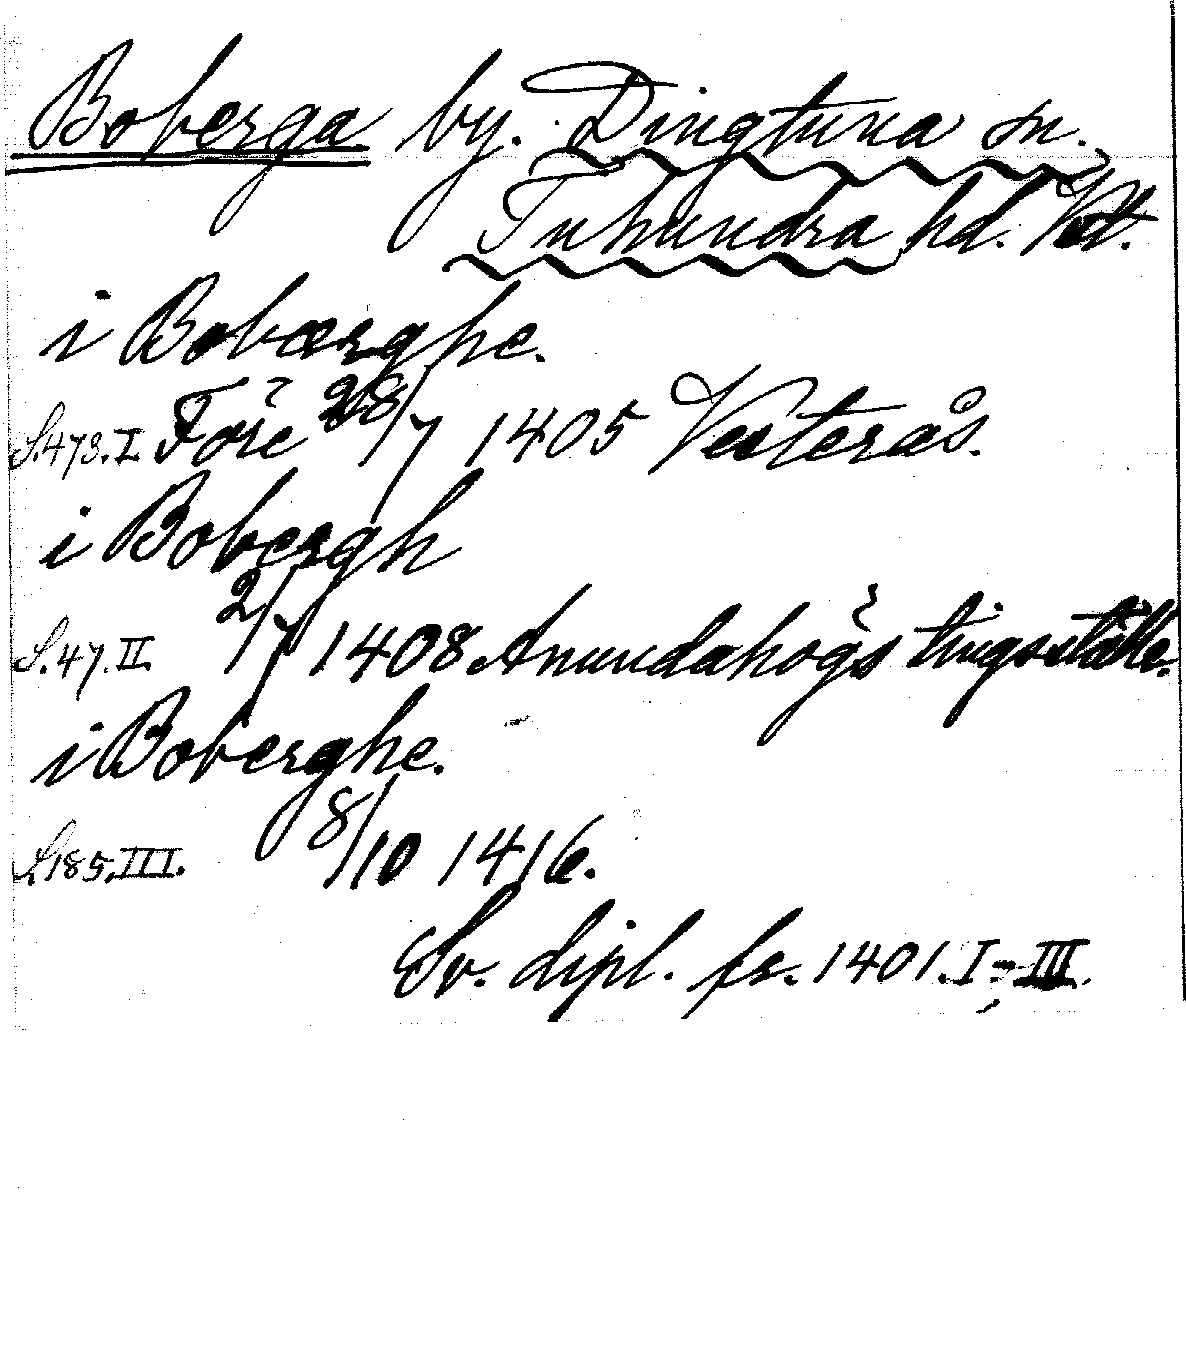 Boberga by. Dingtuna sn.
Tuhundra hd. Vstl.
i Bobærghe.
S.473.I Före 28/7 1405 Vesterås.
i Bobergh
S.47.II. 2/7 1408 Anundahögs tingställe.
i Boberghe.
S.185.III. 8/10 1416.
Sv. dipl. fr. 1401. I-III.